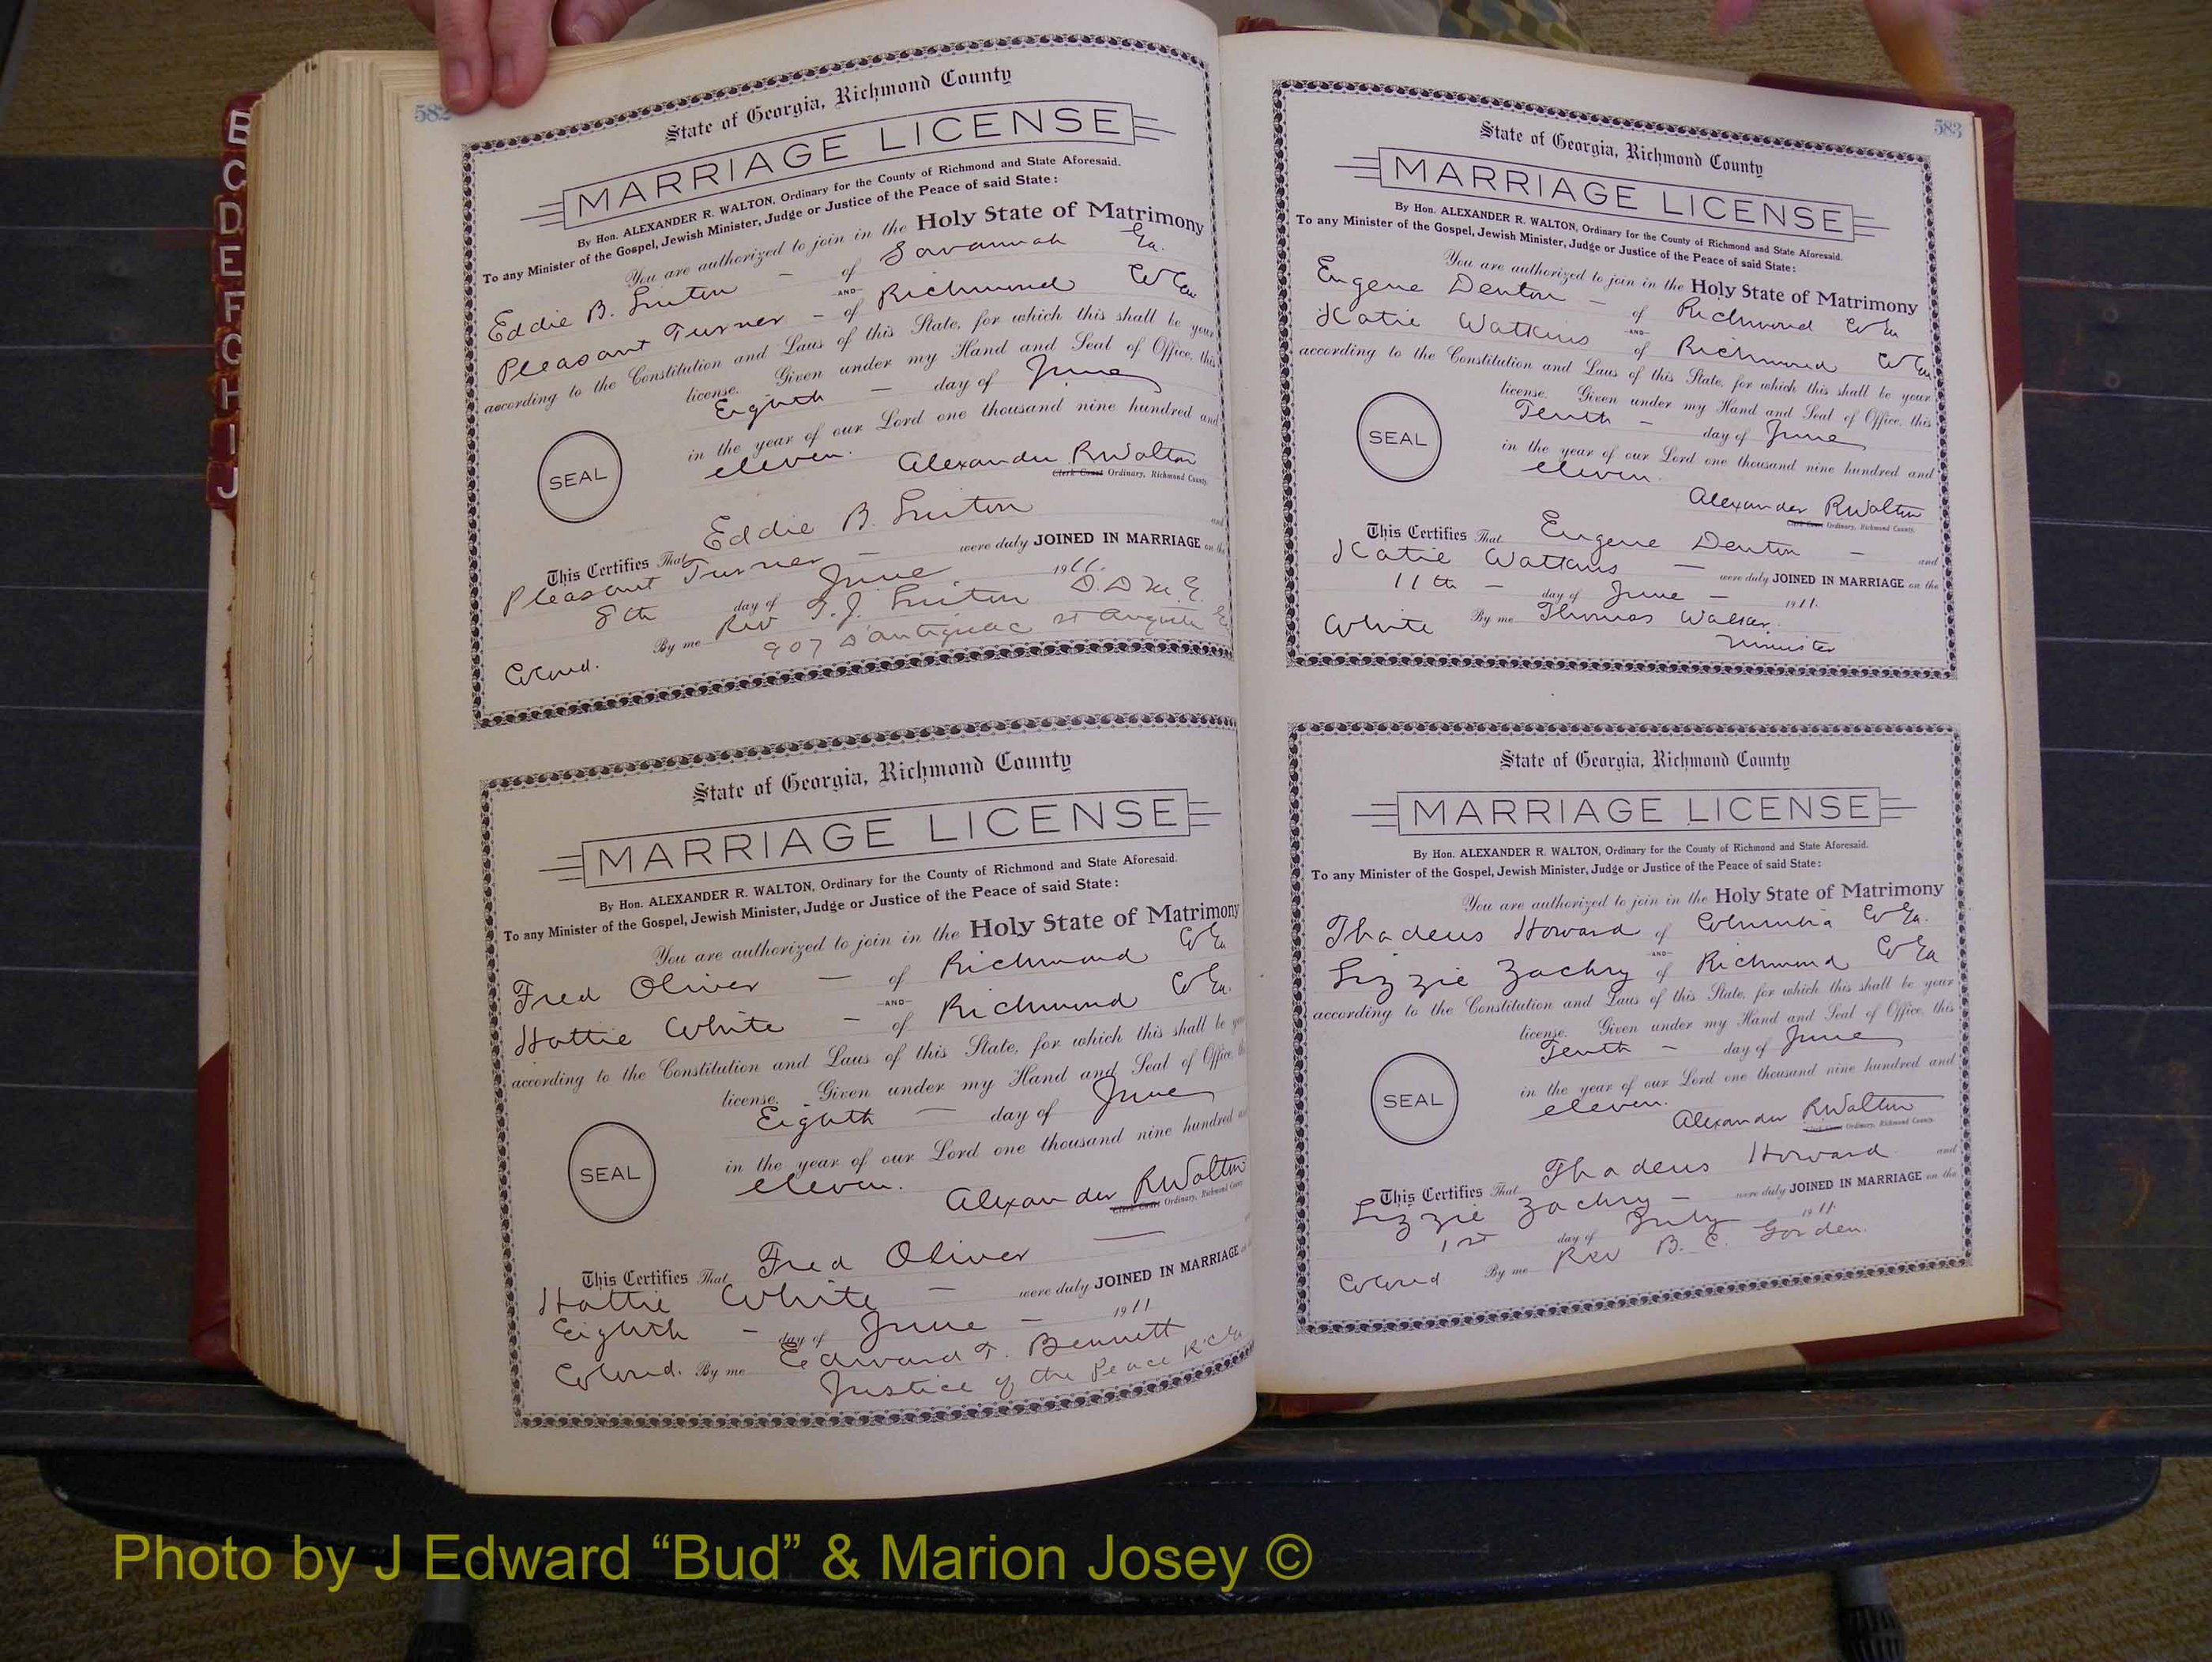 B
C
D
E
F
G
H
I
J
582
State of Georgia, Richmond County
MARRIAGE LICENSE
By Hon. ALEXANDER R. WALTON, Ordinary for the County of Richmond and State Aforesaid.
To any Minister of the Gospel, Jewish Minister, Judge or Justice of the Peace of said State:
You are authorized to join in the Holy State of Matrimony
Eddie B. of Savannah Ga.
AND
Pleasant Turner - of Richmond Co Ga
according to the Constitution and Laws of this State, for which this shall be your
license. Given under my Hand and Seal of Office, this
Eighth - day of June
in the year of our Lord one thousand nine hundred and
eleven.
SEAL
Alexander R Walton
Clerk Court Ordinary, Richmond County.
This Certifies That Eddie B. and
Pleasant Turner - were duly JOINED IN MARRIAGE on the
8th day of June 1911.
By me Rev D.D. M.E.
907 st Augusta Ga
Colored.
State of Georgia, Richmond County
MARRIAGE LICENSE
By Hon. ALEXANDER R. WALTON, Ordinary for the County of Richmond and State Aforesaid.
To any Minister of the Gospel, Jewish Minister, Judge or Justice of the Peace of said State:
You are authorized to join in the Holy State of Matrimony
Fred Oliver - of Richmond Co Ga
AND
Hattie White - of Richmond Co Ga.
according to the Constitution and Laws of this State, for which this shall be your
license. Given under my Hand and Seal of Office, this
Eighth - day of June
in the year of our Lord one thousand nine hundred and
eleven.
SEAL
Alexander R Walton
Clerk Court Ordinary, Richmond County
This Certifies That Fred Oliver -
Hattie White - were duly JOINED IN MARRIAGE
Eighth - day of June - 1911
Colored. By me Edward T. Bennett
Justice of the Peace R C Ga
583
State of Georgia, Richmond County
MARRIAGE LICENSE
By Hon. ALEXANDER R. WALTON, Ordinary for the County of Richmond and State Aforesaid.
To any Minister of the Gospel, Jewish Minister, Judge or Justice of the Peace of said State:
You are authorized to join in the Holy State of Matrimony
Eugene Denton - of Richmond Co Ga
AND
Katie Watkins of Richmond Co Ga
according to the Constitution and Laws of this State, for which this shall be your
license. Given under my Hand and Seal of Office, this
Tenth - day of June
in the year of our Lord one thousand nine hundred and
eleven.
SEAL
Alexander R Walton
Clerk Court Ordinary, Richmond County.
This Certifies That Eugene Denton - and
Katie Watkins - were duly JOINED IN MARRIAGE on the
11th - day of June - 1911.
White By me Thomas Walker.
Minister
State of Georgia, Richmond County
MARRIAGE LICENSE
By Hon. ALEXANDER R. WALTON, Ordinary for the County of Richmond and State Aforesaid.
To any Minister of the Gospel, Jewish Minister, Judge or Justice of the Peace of said State:
You are authorized to join in the Holy State of Matrimony
Thadeus Howard of Columbia Co Ga.
AND
Lizzie Zachry of Richmond Co Ga
according to the Constitution and Laws of this State, for which this shall be your
license. Given under my Hand and Seal of Office, this
Tenth - day of June
in the year of our Lord one thousand nine hundred and
eleven.
SEAL
Alexander R Walton
Clerk Court Ordinary, Richmond County.
This Certifies That Thadeus Howard and
Lizzie Zachry - were duly JOINED IN MARRIAGE on the
1st day of July 1911.
Colored By me Rev B. C. Gorden.
Photo by J Edward “Bud” & Marion Josey ©